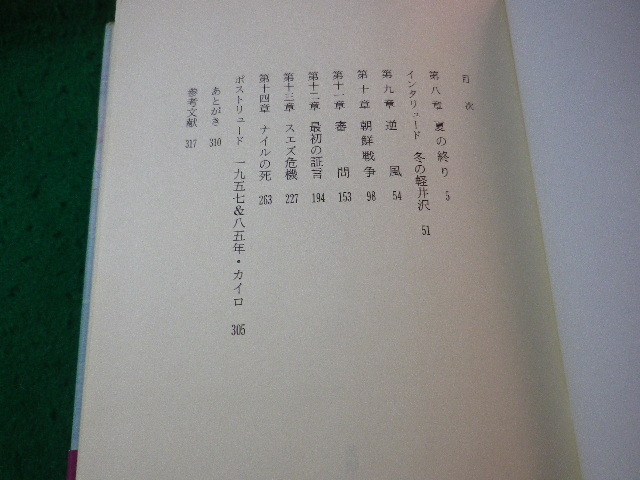 目次
第八章 夏の終り 5
インタリュード 冬の軽井沢 51
第九章 逆風 54
第十章 朝鮮戦争 98
第十一章 審問 153
第十二章 最初の証言 194
第十三章 スエズ危機 227
第十四章 ナイルの死 263
ポストリュード 一九五七&八五年・カイロ 305
あとがき 310
参考文献 317